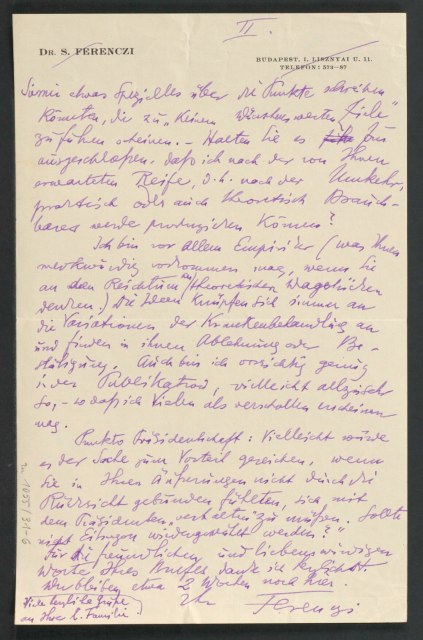 II.
DR. S. FERENCZI
BUDAPEST, I. LISZNYAI U. 11.
TELEFON: 573—87
Sie mir etwas Spezielles über die Punkte schreiben
könnten, die zu „keinem wünschenswerten Ziele"
zu führen scheinen. – Halten Sie es für
ausgeschlossen, daß ich nach der von Ihnen
erwarteten Reife, d. h. nach der Umkehr,
praktisch oder auch theoretisch Brauch-
bares werde produzieren können?
Ich bin vor allem Empiriker (was Ihnen
merkwürdig vorkommen mag, wenn Sie
an den Reichtum an theoretischen Wagestücken
denken.) Die Ideen knüpfen sich immer an
die Variationen der Krankenbehandlung an
und finden in ihnen Ablehnung oder Be-
stätigung. Auch bin ich vorsichtig genug
in der Publikation, vielleicht allzusehr
so, – so daß ich Vielen als verschollen erscheinen
mag.
Punkto Präsidentschaft: Vielleicht würde
es der Sache zum Vorteil gereichen, wenn
Sie in Ihren Äußerungen nicht durch die
Rücksicht gebunden fühlten, sich mit
dem Präsidenten „verhalten" zu müssen. Sollte
nicht Eitingon wiedergewählt werden?
Für die freundlichen und liebenswürdigen
Worte Ihres Briefes danke ich herzlichst
Wir bleiben etwa 2 Wochen noch hier.
Ihr Ferenczi
Viele herzliche Grüße
an Ihre l. Familie.